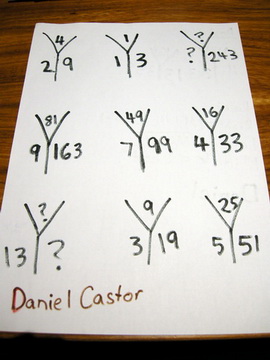 4 1 ?
2 Y 9 1 Y 3 ? Y 243
81 49 16
9 Y 163 7 Y 99 4 Y 33
? 9 25
13 Y ? 3 Y 19 5 Y 51
Daniel Castor